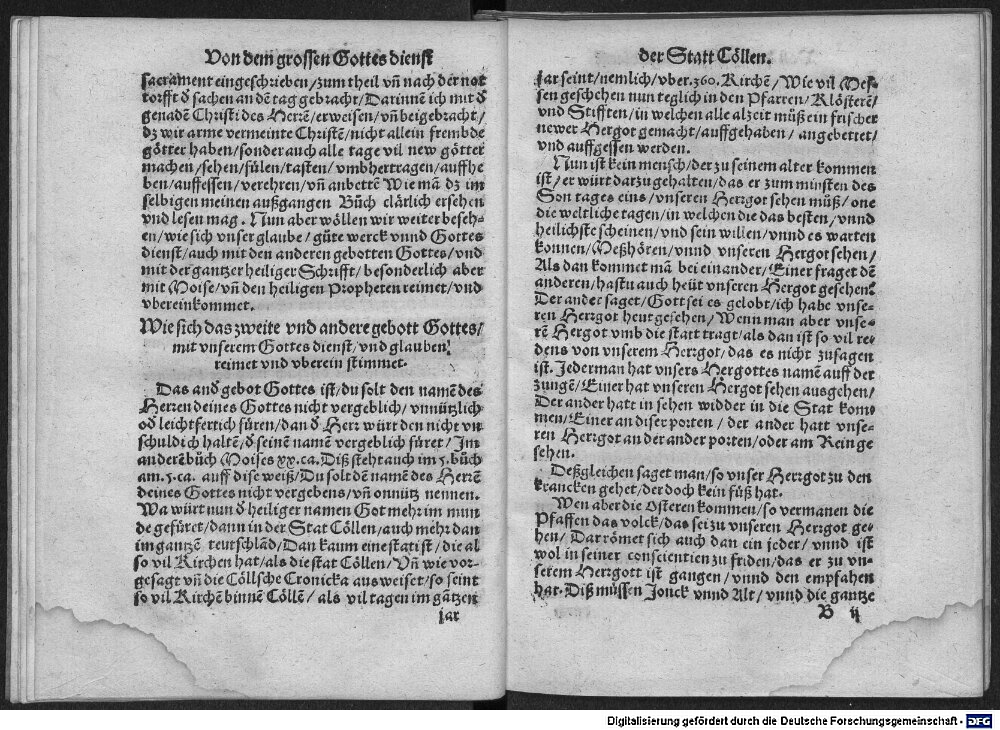 Von dem grossen Gottes dienst
sacrament eingeschrieben/zum theil vñ nach der not
torfft ď sachen an dẽ tag gebracht/Darinnẽ ich mit ď
genadẽ Christi des Herrẽ/erweisen/vñ beigebracht/
dz wir arme vermeinte Christẽ/nicht allein frembde
götter haben/sonder auch alle tage vil new götter
machen/sehen/fülen/tasten/vmbhertragen/auffhe
ben/auffessen/verehren/vñ anbettẽ Wie mã dz im
selbigen meinen außgangen Büch clärlich ersehen
vnd lesen mag. Nun aber wöllen wir weiter beseh-
en/wie sich vnser glaube/güte werck vnnd Gottes
dienst/auch mit den anderen gebotten Gottes/vnd
mit der gantzer heiliger Schrifft/besonderlich aber
mit Moise/vñ den heiligen Propheten reimet/vnd
vbereinkommet.
Wie sich das zweite vnd andere gebott Gottes/
mit vnserem Gottes dienst/vnd glauben/
reimet vnd vberein stimmet.
Das anď gebot Gottes ist/du solt den namẽ des
Herren deines Gottes nicht vergeblich/vnnützlich
oď leichtfertich füren/dan ď Herr würt den nicht vn
schuldich haltẽ/ď seinẽ namẽ vergeblich füret/Im
anderẽ büch Moises xx.ca. Diß steht auch im 5. büch
am. 5. ca. auff dise weiß/Du solt dẽ namẽ des Herrẽ
deines Gottes nicht vergebens/vñ onnütz nennen.
Wa würt nun ď heiliger namen Got mehr im mun
de gefüret/dann in der Stat Cöllen/auch mehr dan
im gantzẽ teutschlãd/Dan kaum eine stat ist/die al
so vil Kirchen hat/als die stat Cöllen/Vñ wie vor-
gesagt vñ die Cöllsche Cronicka ausweiset/so seint
so vil Kirchẽ binnẽ Cöllẽ/als vil tagen im gãtzen
jar
der Statt Cöllen.
jar seint/nemlich/vber. 360. Kirchẽ/Wie vil Mes-
sen geschehen nun teglich in den Pfarren/Klösterẽ/
vnd Stifften/in welchen alle alzeit müß ein frischer
newer Hergot gemacht/auffgehaben/angebettet/
vnd auffgessen werden.
Nun ist kein mensch/der zu seinem alter kommen
ist/er würt darzu gehalten/das er zum minsten des
Son tages eins/vnseren Herrgot sehen müß/one
die weltliche tagen/in welchen die das besten/vnnd
heilichste scheinen/vnd sein willen/vnnd es warten
konnen/Meßhören/vnnd vnseren Hergot sehen/
Als dan kommet mã bei einander/Einer fraget dẽ
anderen/hastu auch heüt vnseren Hergot gesehen?
Der ander saget/Gott sei es gelobt/ich habe vnse-
ren Hergot heut gesehen/Wenn man aber vnse-
rẽ Hergot vmb die statt tragt/als dan ist so vil re-
dens von vnserem Herrgot/das es nicht zusagen
ist. Jederman hat vnsers Hergottes namẽ auff der
zungẽ/Einer hat vnseren Hergot sehen ausgehen/
Der ander hatt in sehen widder in die Stat kom
men/Einer an diser porten/der ander hatt vnse-
ren Herrgot an der ander porten/oder am Rein ge
sehen.
Deßgleichen saget man/so vnser Herrgot zu den
krancken gehet/der doch kein füß hat.
Wen aber die Osteren kommen/so vermanen die
Pfaffen das volck/das sei zu vnseren Herrgot ge-
hen/Dar römet sich auch dan ein jeder/vnnd ist
wol in seiner conscientien zu friden/das er zu vn-
serem Herrgott ist gangen/vnnd den empfahen
hat. Diß müssen Jonck vnnd Alt/vnnd die gantze
B ij
Digitalisierung gefördert durch die Deutsche Forschungsgemeinschaft - DFG